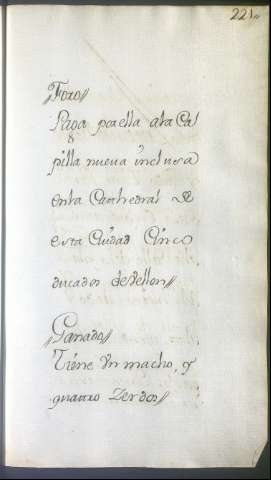 221
Foro//
Paga por ella a la Ca
pilla nueva inclusa
en la Cathedral de
esta Ciudad Cinco
ducados de Vellon//
Ganado//
Tiene Un macho, y
quatro Zerdos//